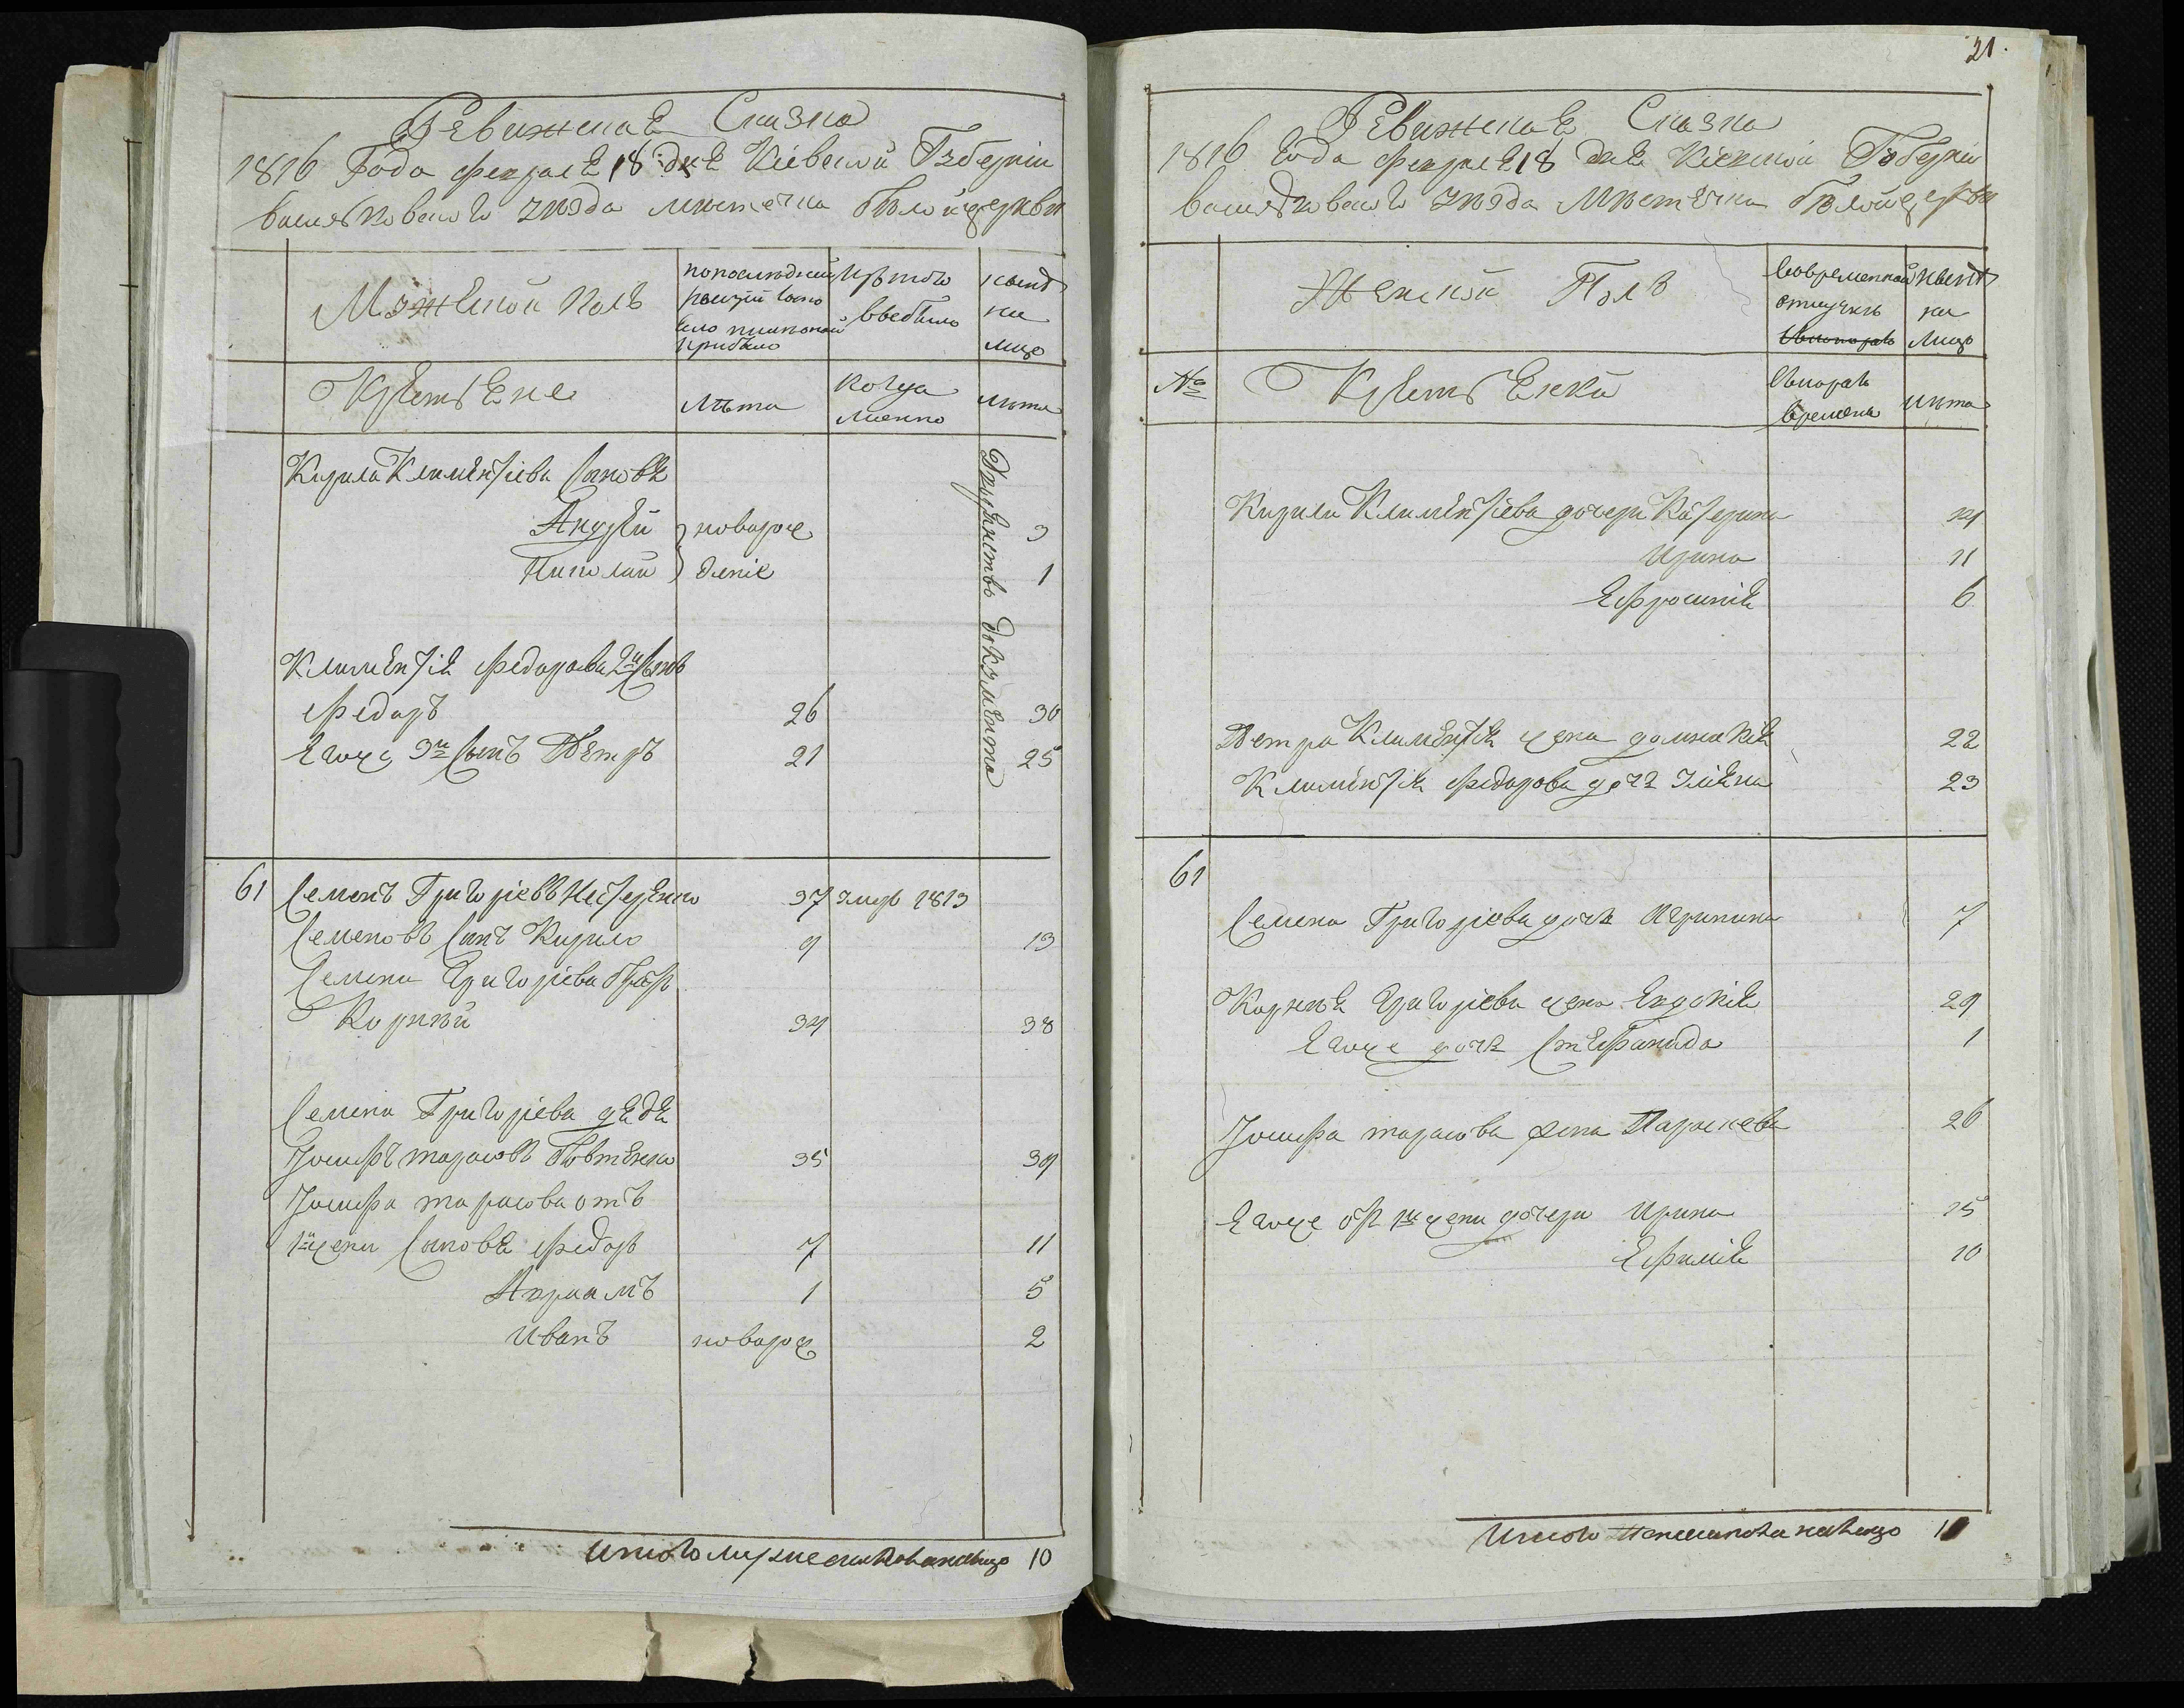 Ревижская Сказка
1816 Года февраля 18 дня Кіевской Губерніи
васильковского уезда местечка Белойцеркви
Мужеской полъ
по последней
ревизіи состо
яло и после оной
прибыло
Изъ того
выбыло
ныне
на
лицо
Крестьяне
Лета
Когда
именно
лета
Кирила Климентіева Сыновья
Андрей новорож 3
Николай деніе 1
Климентія федорова 2й Сынъ
федоръ 26 30
Егоже 3й Сынъ Петръ 21 25
61 Семенъ Григоріевъ Нестеренко 37 умеръ 1813
Семеновъ Сынъ Кирило 9 13
Семена Григоріева братъ
Корней 34 38
Семена Григоріева дядя
Іосифъ тарасовъ 35 39
Іосифа тарасова отъ
1й жены Сыновья федоръ 7 11
Авраамъ 1 5
Иванъ новорож 2
Итого мужеска пола налицо 10
21.
Ревижская Сказка
1816 года февраля 18 дня Кіевской Губерніи
васильковского уезда Местечка Белойцеркви
Женской Полъ
Вовременной
отлучке
ныне
на
Лицо
№
Крестьянки
Скоторого
времени
Лета
Кирила Климентіева дочери Катерина 14
Ирина 11
Ефросинія 6
Петра Климентія жена домникія 22
Климентія федорова дочь Уліяна 23
61
Семена Григоріева дочь Агрипина 7
Корнея Григоріева жена Евдокія 29
Егоже дочь Стефанида 1
Іосифа тарасова жена Параскева 26
Егоже отъ 1й жены дочери Ирина 15
Ефимія 10
Итого Женскапола налицо